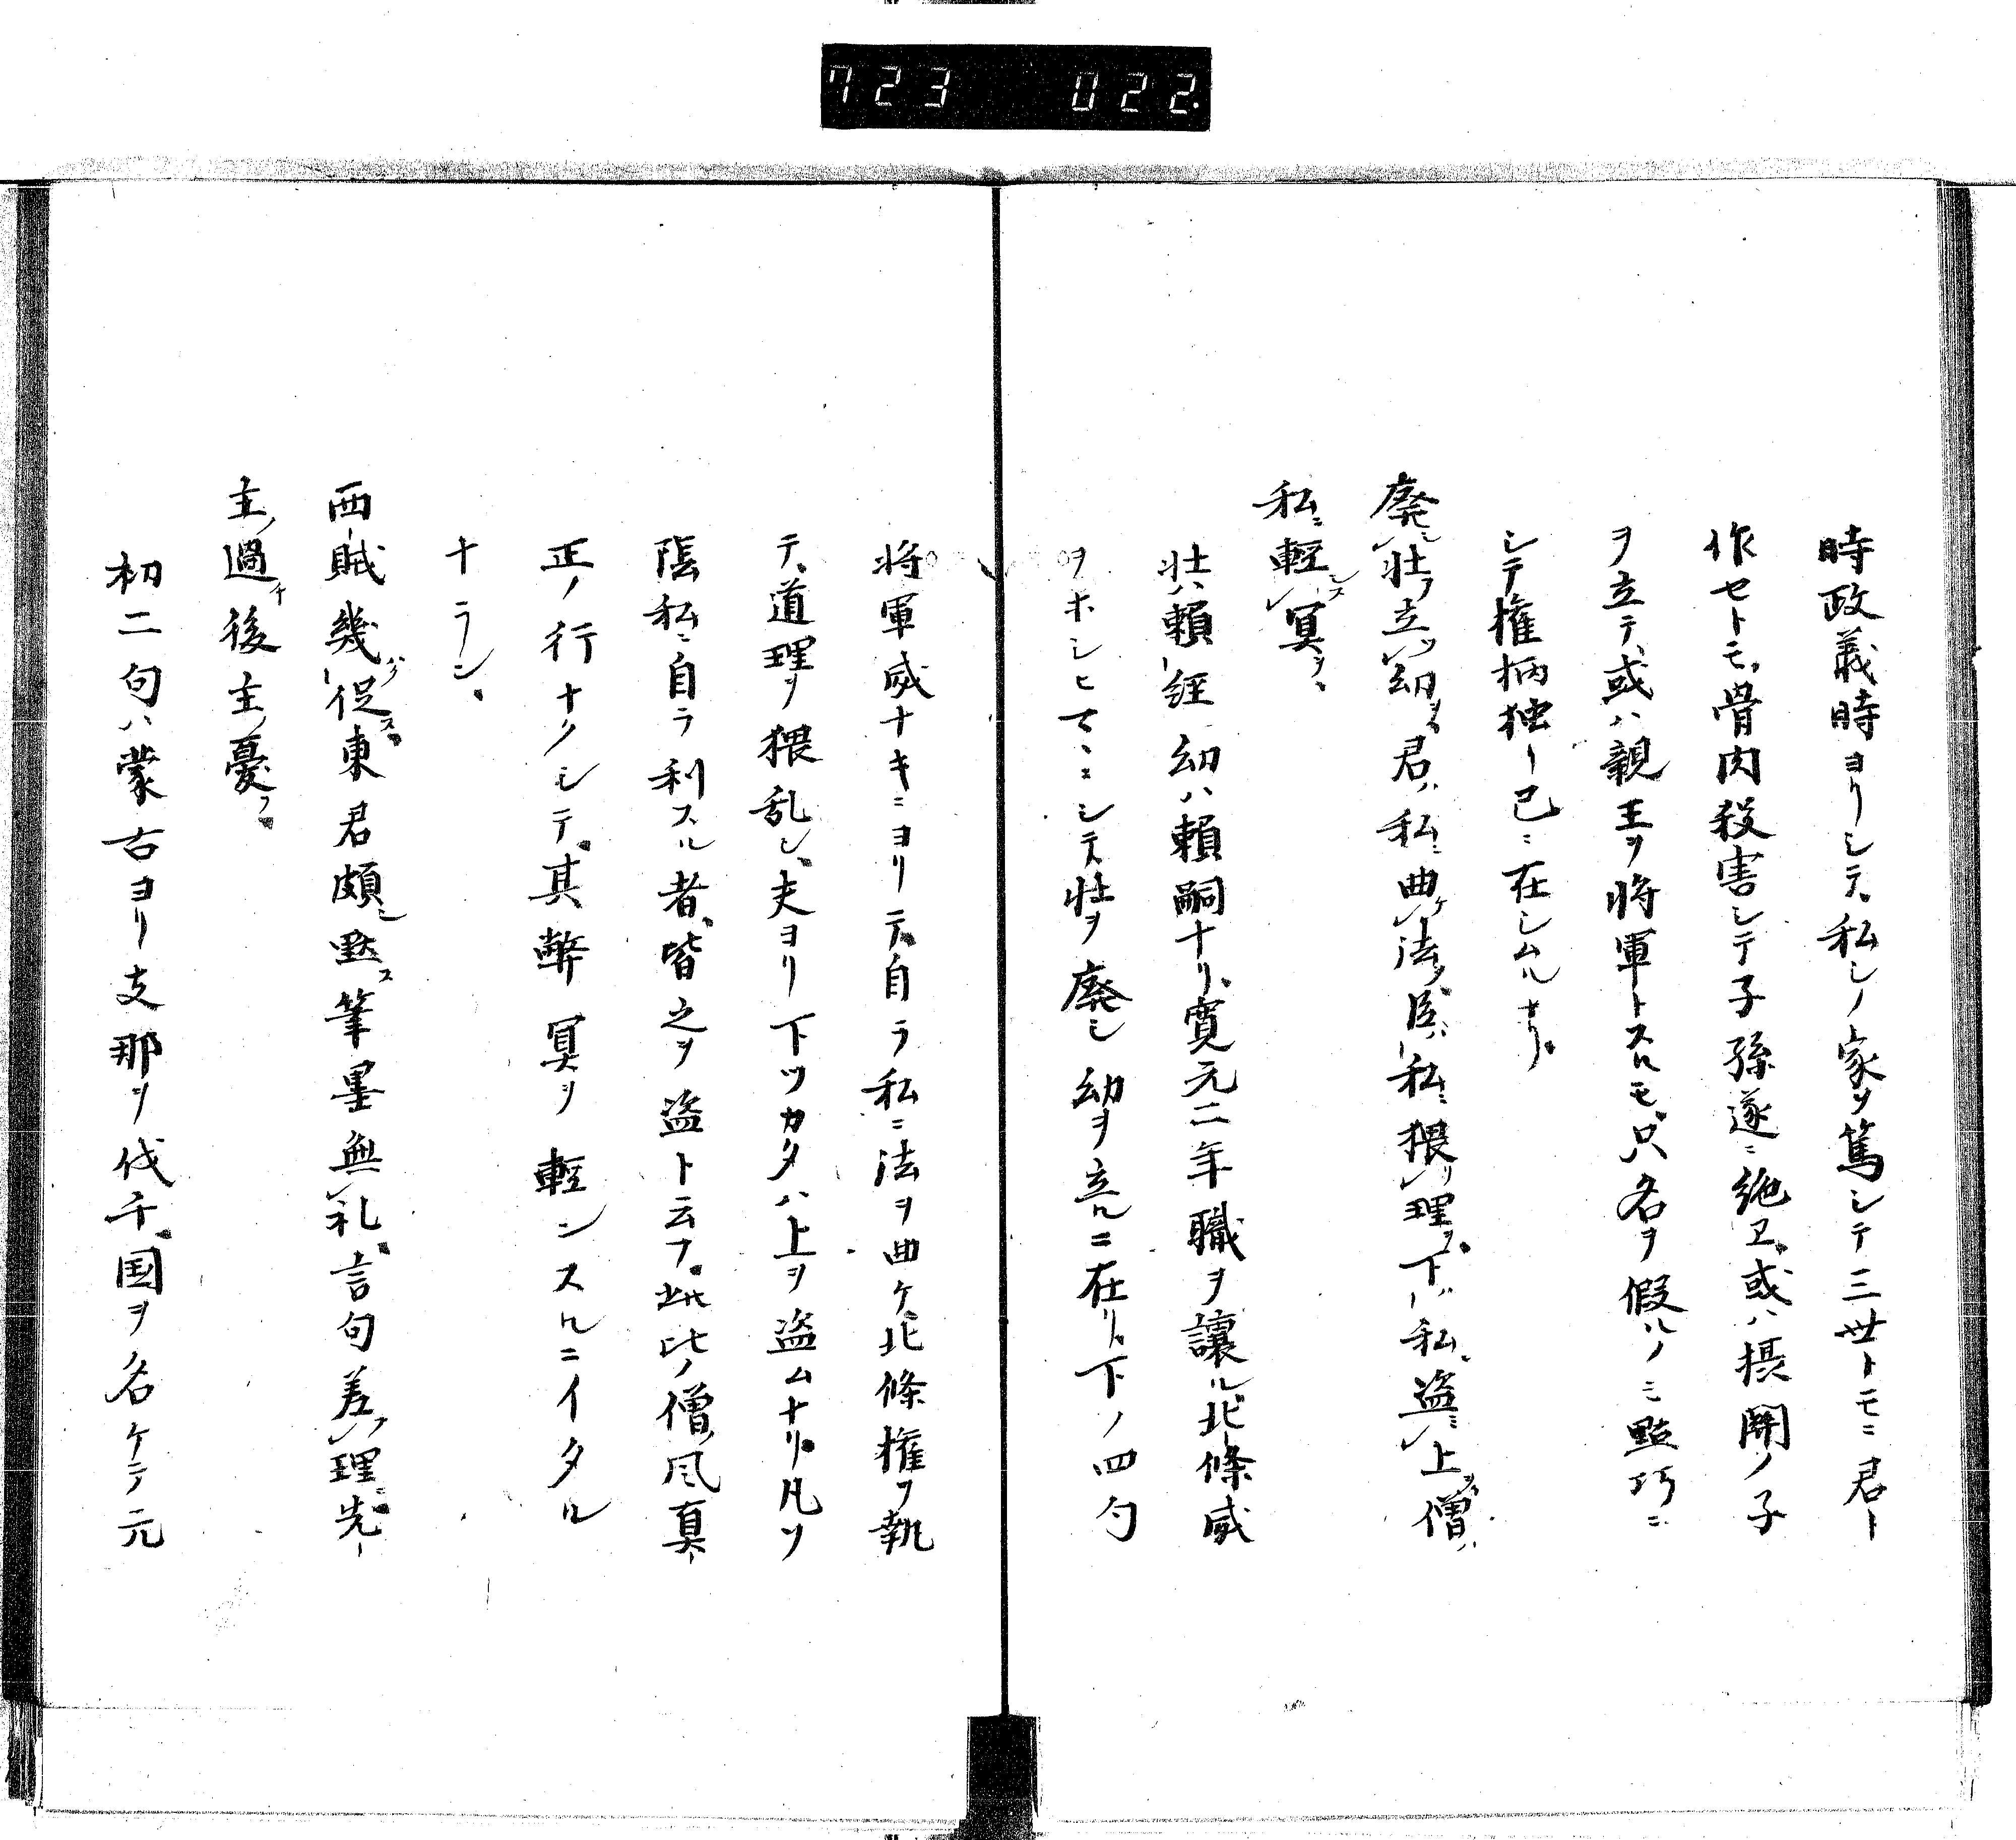 723 022
時政義時ヨリシテ私シノ家ヲ篤シテ三世トモニ君ト
作セトモ骨肉殺害シテ子孫遂ニ絶エ或ハ摂関ノ子
ヲ立テ或ハ親王ヲ将軍トスルモ只名ヲ假ルノミ黠巧ニ
シテ権柄独リ己ニ在シムルナリ
廃シ壮ヲ立ツ幼ヲ君ハ私ニ曲ケ法ヲ臣ハ私ニ猥リ理ヲ下ハ私ニ盗ミ上ヲ僧ハ
私ニ軽ンス冥ヲ
壮ハ頼経幼ハ頼嗣ナリ寛元二年職ヲ譲ル北條威
ヲホシヒマヽニシテ壮ヲ廃シ幼ヲ立ルニ在リ下ノ四句
将軍威ナキニヨリテ自ラ私ニ法ヲ曲ケ北條権ヲ執
テ道理ヲ猥乱シ夫ヨリ下ツカタハ上ヲ盗ムナリ凡ソ
陰私ニ自ラ利スル者皆之ヲ盗ト云フ此比ノ僧風真
正ノ行ナクシテ其弊冥ヲ軽ンスルニイタル
ナラン
西賊幾ハク促ス東君頗ル黙ス筆墨無礼言句差フ理ニ先
主ノ過チ後主ノ憂フ
初二句ハ蒙古ヨリ支那ヲ伐チ国ヲ名ケテ元